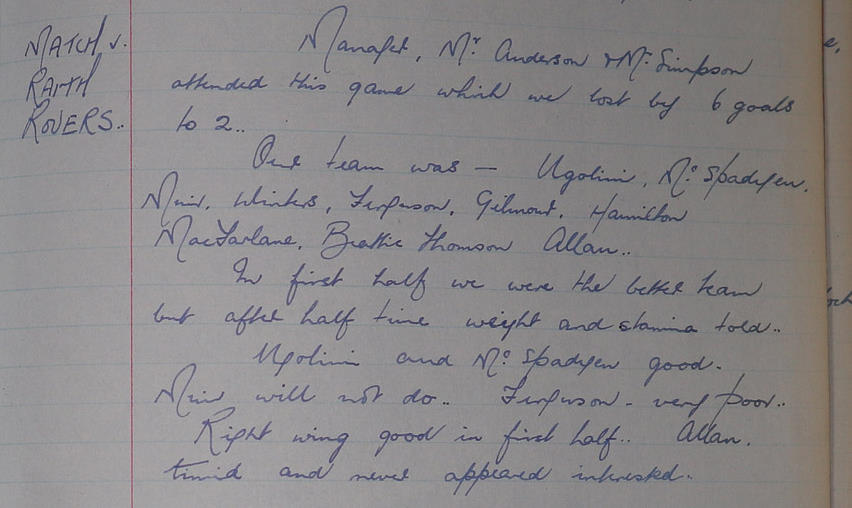 MATCH v.
RAITH
ROVERS..
Manager, Mr Anderson & Mr Simpson
attended this game which we lost by 6 goals
to 2..
Our team was — Ugolini, Mc Spadyen.
Muir. Winters, Ferguson, Gilmour, Hamilton
MacFarlane, Beattie Thomson Allan..
In first half we were the better team
but after half time weight and stamina told..
Ugolini and Mc Spadyen good.
Muir will not do.. Ferguson - very poor..
Right wing good in first half.. Allan.
timid and never appeared interested..